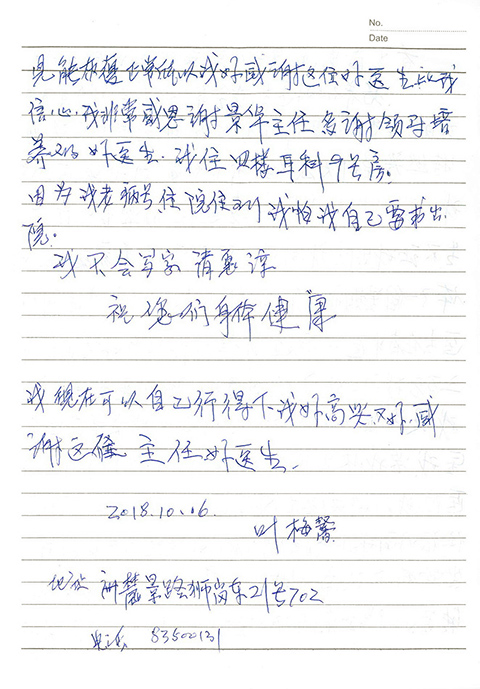 No.
Date
见能恢复正常所以我好感谢这位好医生给我
信心.我非常感恩谢景华主任多谢领导培
养的好医生.我住四楼耳科9号房.
因为我老病号住院住到我怕我自己要求出
院.
我不会写字请原谅
祝您们身体健康
我现在可以自己行得下我好高兴.好感
谢这位主任好医生.
2018.10.06.
叶梅馨
地址 景路狮岗东21号702
电话 83500131